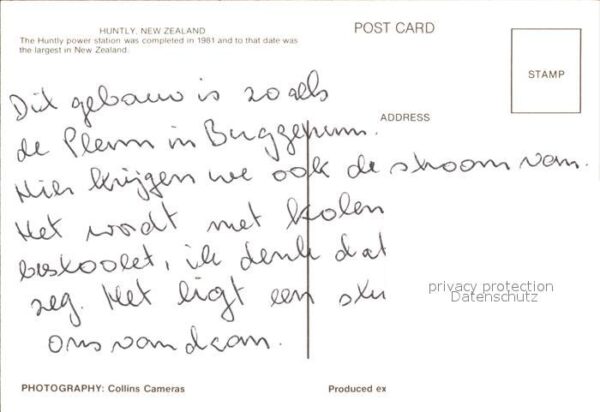 HUNTLY, NEW ZEALAND
The Huntly power station was completed in 1981 and to that date was
the largest in New Zealand.
POST CARD
STAMP
ADDRESS
Dit gebouw is zoals
de Plem in Buggenum.
Hier krijgen we ook de stroom van.
Het wordt met kolen
ik denk dat
zeg. Het ligt een
ons vandaan.
privacy protection
Datenschutz
PHOTOGRAPHY: Collins Cameras
Produced ex